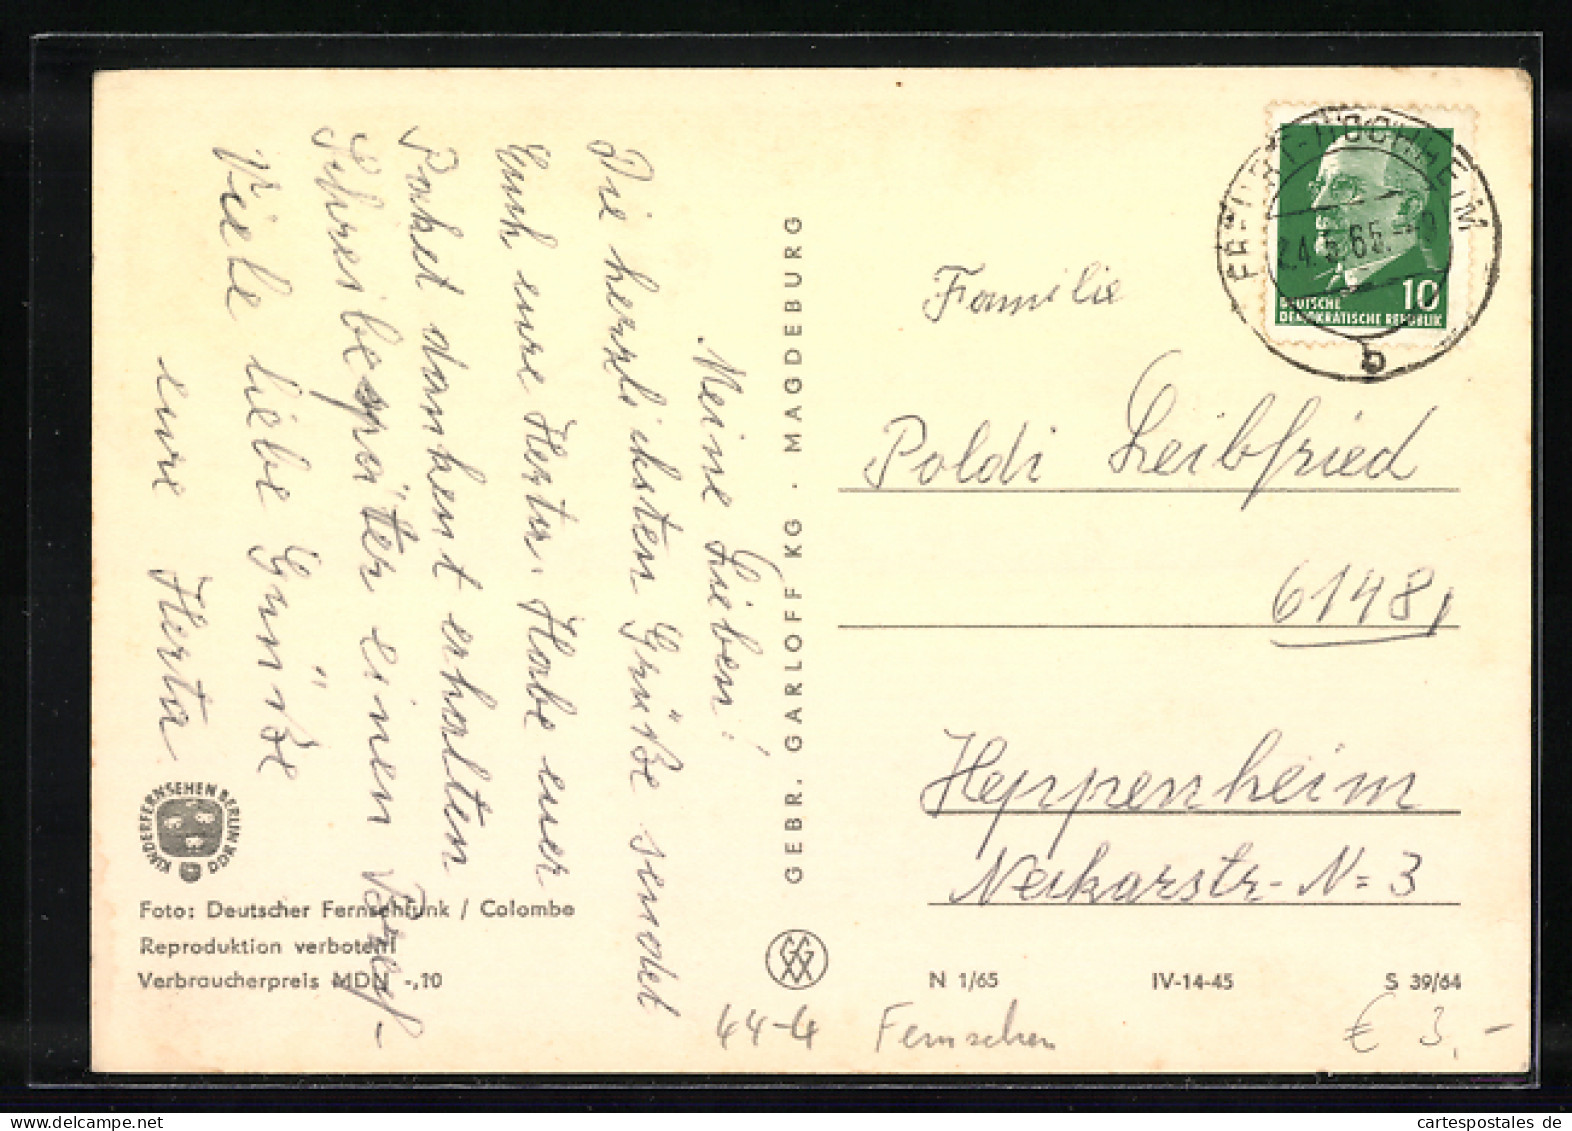 Meine Lieben!
Die herzlichsten Grüße sendet
Euch eure Herta. Habe euer
Paket dankent erhalten
Schreibe später einen Brief.
Viele liebe Grüße
eure Herta
KINDERFERNSEHEN BERLIN DDR
Foto: Deutscher Fernsehfunk / Colombe
Reproduktion verboten!
Verbraucherpreis MDN -,10
GEBR. GARLOFF KG · MAGDEBURG
DEUTSCHE
DEMOKRATISCHE REPUBLIK
10
24.5.65
b
Familie
Poldi Leibfried
6148,
Heppenheim
Neckarstr- N= 3
N 1/65 IV-14-45 S 39/64
44-4 Fernsehen € 3,-
cartespostales de